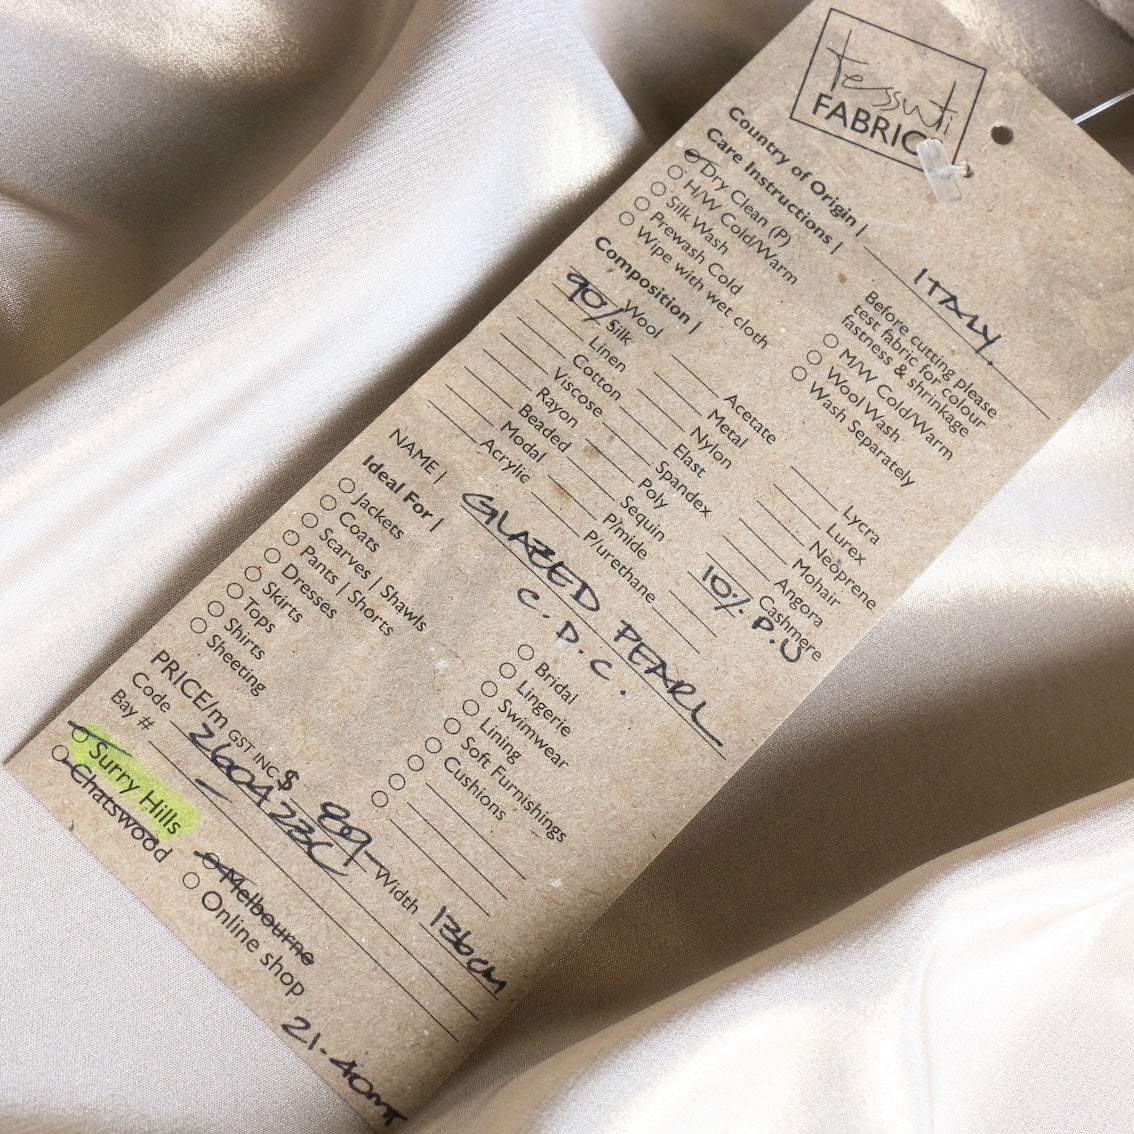 tessuti
FABRICS
Country of Origin | ITALY.
Care Instructions |
Dry Clean (P)
H/W Cold/Warm
Silk Wash
Prewash Cold
Wipe with wet cloth
Before cutting please
test fabric for colour
fastness & shrinkage
M/W Cold/Warm
Wool Wash
Wash Separately
Composition |
Wool
90% Silk
Linen
Cotton
Viscose
Rayon
Beaded
Modal
Acrylic
Acetate
Metal
Nylon
Elast
Spandex
Poly
Sequin
P/mide
P/urethane
Lycra
Lurex
Neoprene
Mohair
Angora
Cashmere
10% P.U
NAME | GLAZED PEARL
C.D.C.
Ideal For |
Jackets
Coats
Scarves | Shawls
Pants | Shorts
Dresses
Skirts
Tops
Shirts
Sheeting
Bridal
Lingerie
Swimwear
Lining
Soft Furnishings
Cushions
PRICE/m GST INC. $ 89- Width 136cm
Code 260423C
Bay #
Surry Hills
Chatswood
Melbourne
Online shop
21.40mt